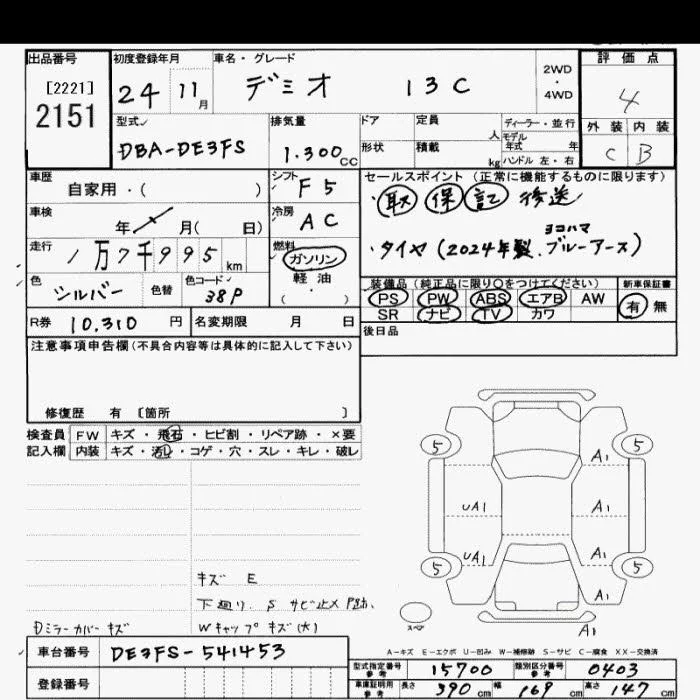 出品番号
[2221]
2151
初度登録年月
24 11月
車名・グレード
デミオ 13C
2WD
・
4WD
評価点
4
外装 内装
C B
型式
DBA-DE3FS
排気量
1.300cc
ドア
定員
人
形状
積載
kg
ディーラー・並行
モデル
年式 年
ハンドル 左・右
車歴
自家用・( )
シフト
F5
車検
年 月( 日)
冷房
AC
走行
1万7千995km
燃料
ガソリン
軽油
・
( )
色
シルバー
色替
色コード
38P
R券 10,310円
名変期限 月 日
セールスポイント(正常に機能するものに限ります)
・取 保 記 後送
・タイヤ(2024年製.ヨコハマ ブルーアース)
装備品(純正品に限り〇をつけてください)
PS PW ABS エアB AW
SR ナビ TV カワ
新車保証書
有 無
後日品
注意事項申告欄(不具合内容等は具体的に記入して下さい)
修復歴 有 〔箇所 〕
検査員
記入欄
FW キズ・飛石・ヒビ割・リペア跡・×要
内装 キズ・汚レ・コゲ・穴・スレ・キレ・破レ
キズ E
下廻り. S サビ止メ
Dミラーカバーキズ
Wキャップキズ(大)
5 5
A1
UA1 A1
UA1 A1
5 5
A1
A1
スペア
A-キズ E-エクボ U-凹み W-補修跡 S-サビ C-腐食 XX-交換済
車台番号 DE3FS-541453
登録番号
型式指定番号
参考
15700
類別区分番号
参考
0403
車庫証明用
参考
長さ 390cm
幅 169cm
高さ 147cm